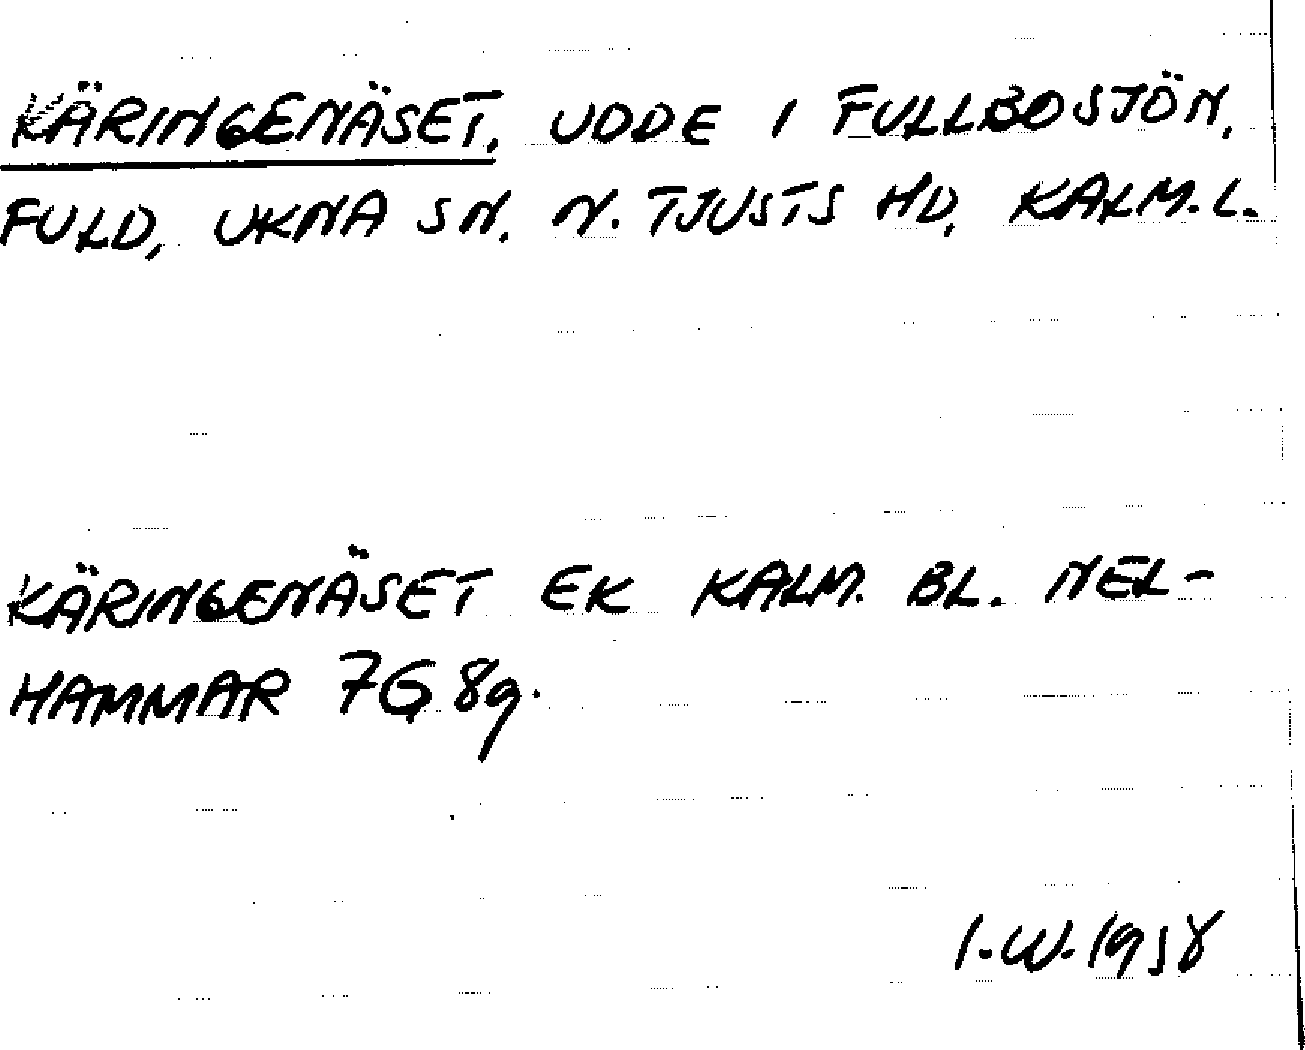 KÄRINGENÄSET, UDDE I FULLBOSJÖN,
FULD, UKNA SN, N. TJUSTS HD, KALM.L.
KÄRINGENÄSET EK KALM. BL. NEL-
HAMMAR 7G 8g.
I.W. 1958